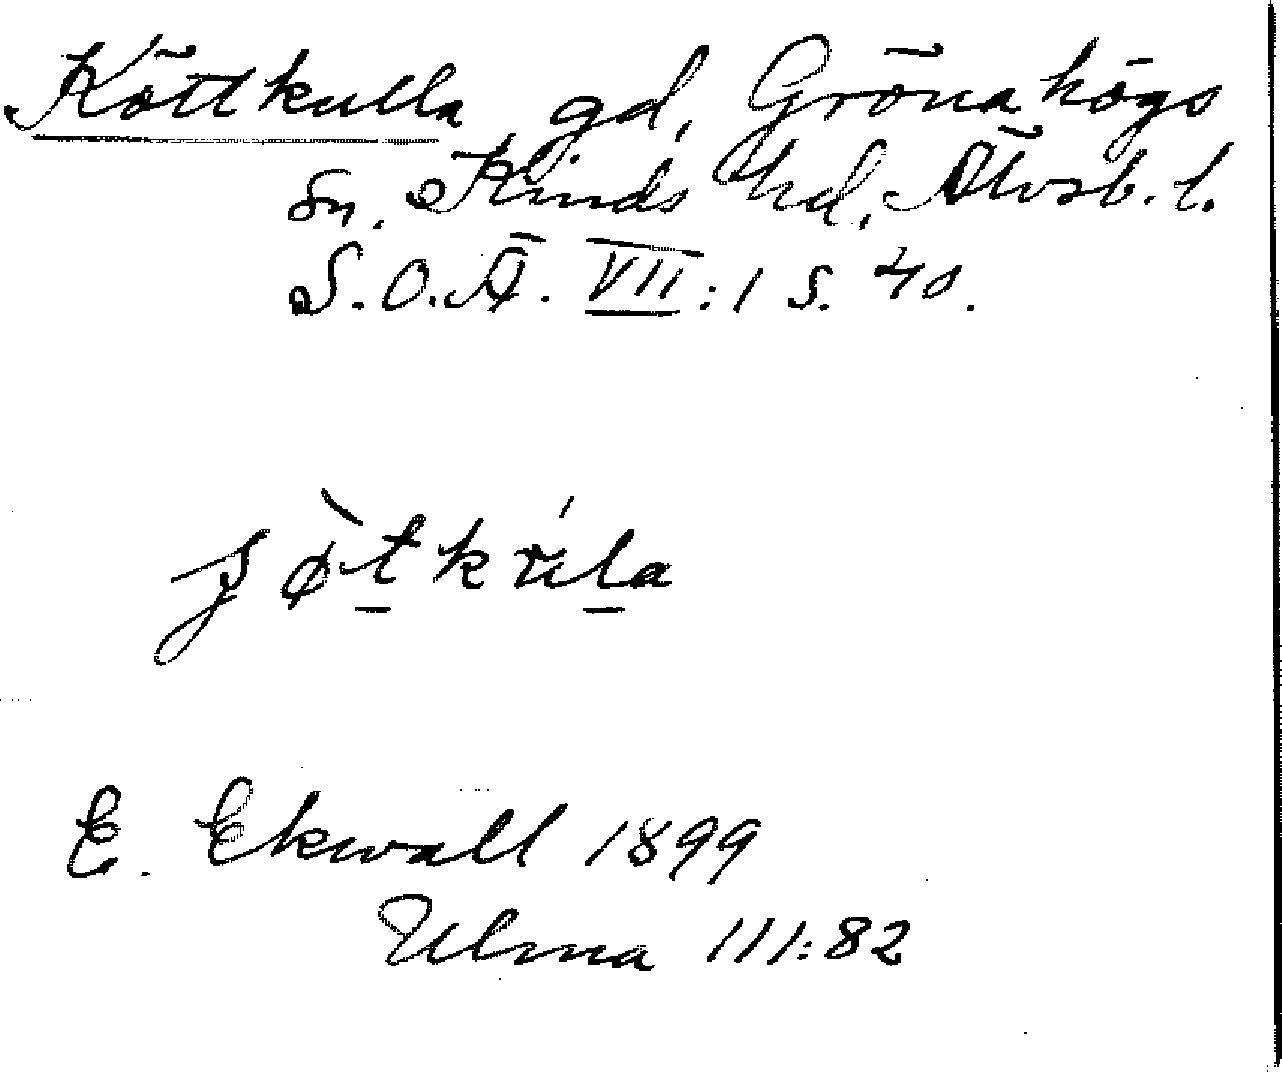 Köttkulla gd, Grönahögs
sn. Kinds hd, Älvsb. l.
S.O.Ä. VII:1 s. 40.
E. Ekwall 1899
Ulma 111:82